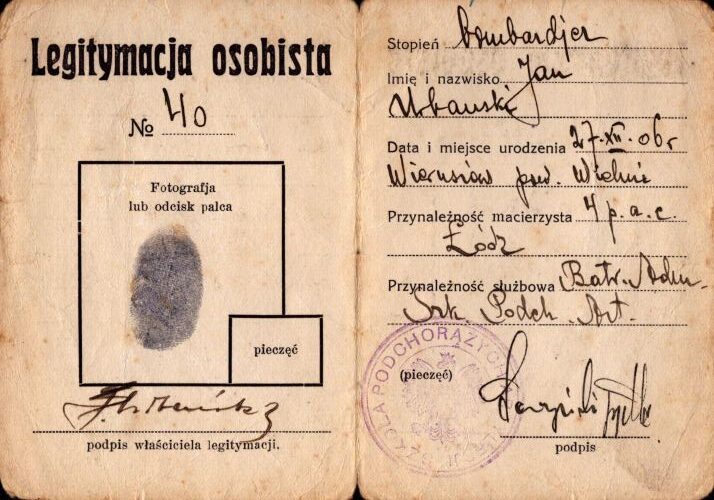 Legitymacja osobista
№ 40
Fotografja
lub odcisk palca
pieczęć
podpis właściciela legitymacji.
Stopień bombardjer
Imię i nazwisko Jan
Urbański
Data i miejsce urodzenia 27.XII.06r
Wieruszów pow. Wieluń
Przynależność macierzysta 4 p.a.c.
Łódź
Przynależność służbowa Batr. Adm.
Szk. Podch. Art.
(pieczęć)
SZKOŁA PODCHORĄŻYCH
podpis